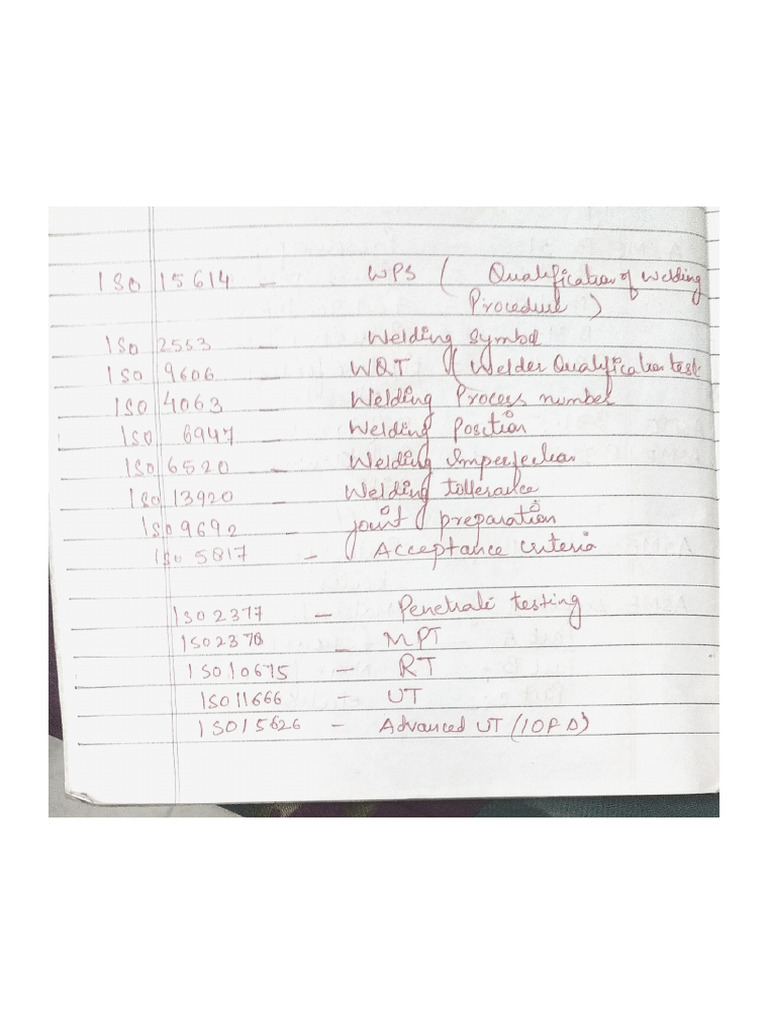 ISO 15614 - WPS ( Qualification of Welding
Procedure )
ISO 2553 - Welding Symbol
ISO 9606 - WQT ( Welder Qualification test
ISO 4063 - Welding Process number
ISO 6947 - Welding Position
ISO 6520 - Welding Imperfection
ISO 13920 - Welding tollerance
ISO 9692 - joint preparation
ISO 5817 - Acceptance criteria
ISO 2377 - Penetrate testing
ISO 2378 - MPT
ISO 10675 - RT
ISO 11666 - UT
ISO 15626 - Advanced UT (TOFD)